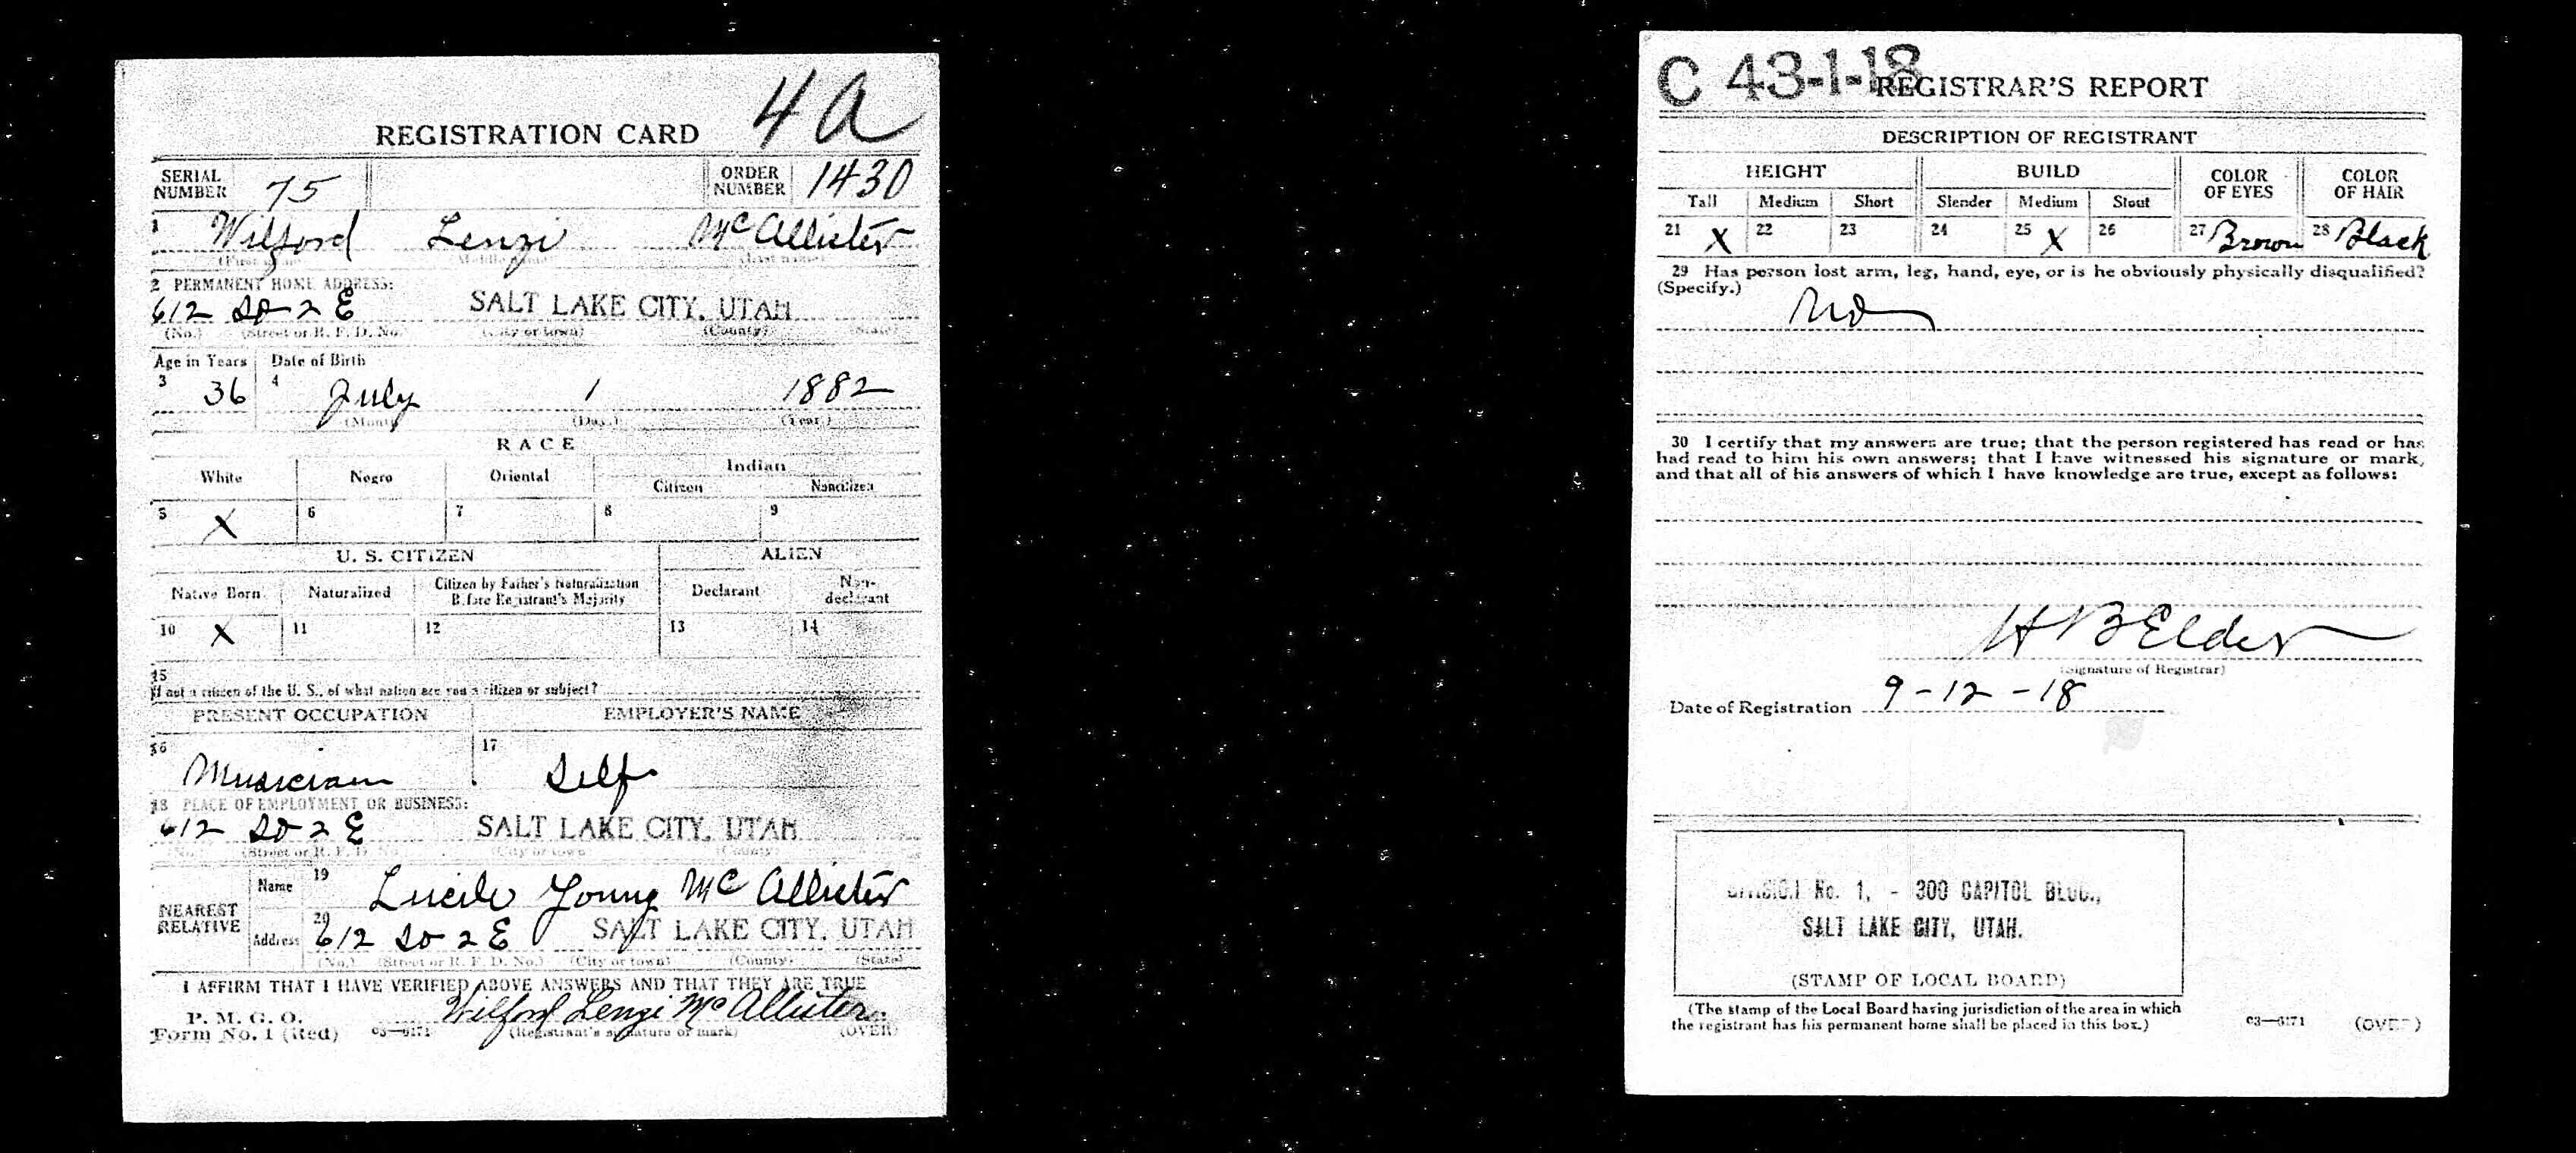 4A
REGISTRATION CARD
SERIAL NUMBER 75 ORDER NUMBER 1430
1 Wilford Lenzi McAllister
(First name) (Middle name) (Last name)
2 PERMANENT HOME ADDRESS:
612 So 2 E SALT LAKE CITY, UTAH
(No.) (Street or R. F. D. No.) (City or town) (County) (State)
Age in Years Date of Birth
3 36 4 July 1 1882
(Month) (Day.) (Year.)
RACE
White Negro Oriental Indian
Citizen Noncitizen
5 X 6 7 8 9
U. S. CITIZEN ALIEN
Native Born Naturalized Citizen by Father's Naturalization Before Registrant's Majority Declarant Non-declarant
10 X 11 12 13 14
15
If not a citizen of the U. S., of what nation are you a citizen or subject?
PRESENT OCCUPATION EMPLOYER'S NAME
16 Musician 17 Self
18 PLACE OF EMPLOYMENT OR BUSINESS:
612 So 2 E SALT LAKE CITY, UTAH
(No.) (Street or R. F. D. No.) (City or town) (County)
NEAREST RELATIVE Name 19 Lucile Young McAllister
Address 20 612 So 2 E SALT LAKE CITY, UTAH
(No.) (Street or R. F. D. No.) (City or town) (County) (State)
I AFFIRM THAT I HAVE VERIFIED ABOVE ANSWERS AND THAT THEY ARE TRUE
P. M. G. O.
Form No. 1 (Red) 03—6171 Wilford Lenzi McAllister
(Registrant's signature or mark) (OVER)
C 43-1-18
REGISTRAR'S REPORT
DESCRIPTION OF REGISTRANT
HEIGHT BUILD COLOR OF EYES COLOR OF HAIR
Tall Medium Short Slender Medium Stout
21 X 22 23 24 25 X 26 27 Brown 28 Black
29 Has person lost arm, leg, hand, eye, or is he obviously physically disqualified?
(Specify.)
No
30 I certify that my answers are true; that the person registered has read or has
had read to him his own answers; that I have witnessed his signature or mark,
and that all of his answers of which I have knowledge are true, except as follows:
H B Elder
(Signature of Registrar)
Date of Registration 9-12-18
DIVISION No. 1, - 300 CAPITOL BLDG.,
SALT LAKE CITY, UTAH.
(STAMP OF LOCAL BOARD)
(The stamp of the Local Board having jurisdiction of the area in which
the registrant has his permanent home shall be placed in this box.)
03—6171 (OVER)